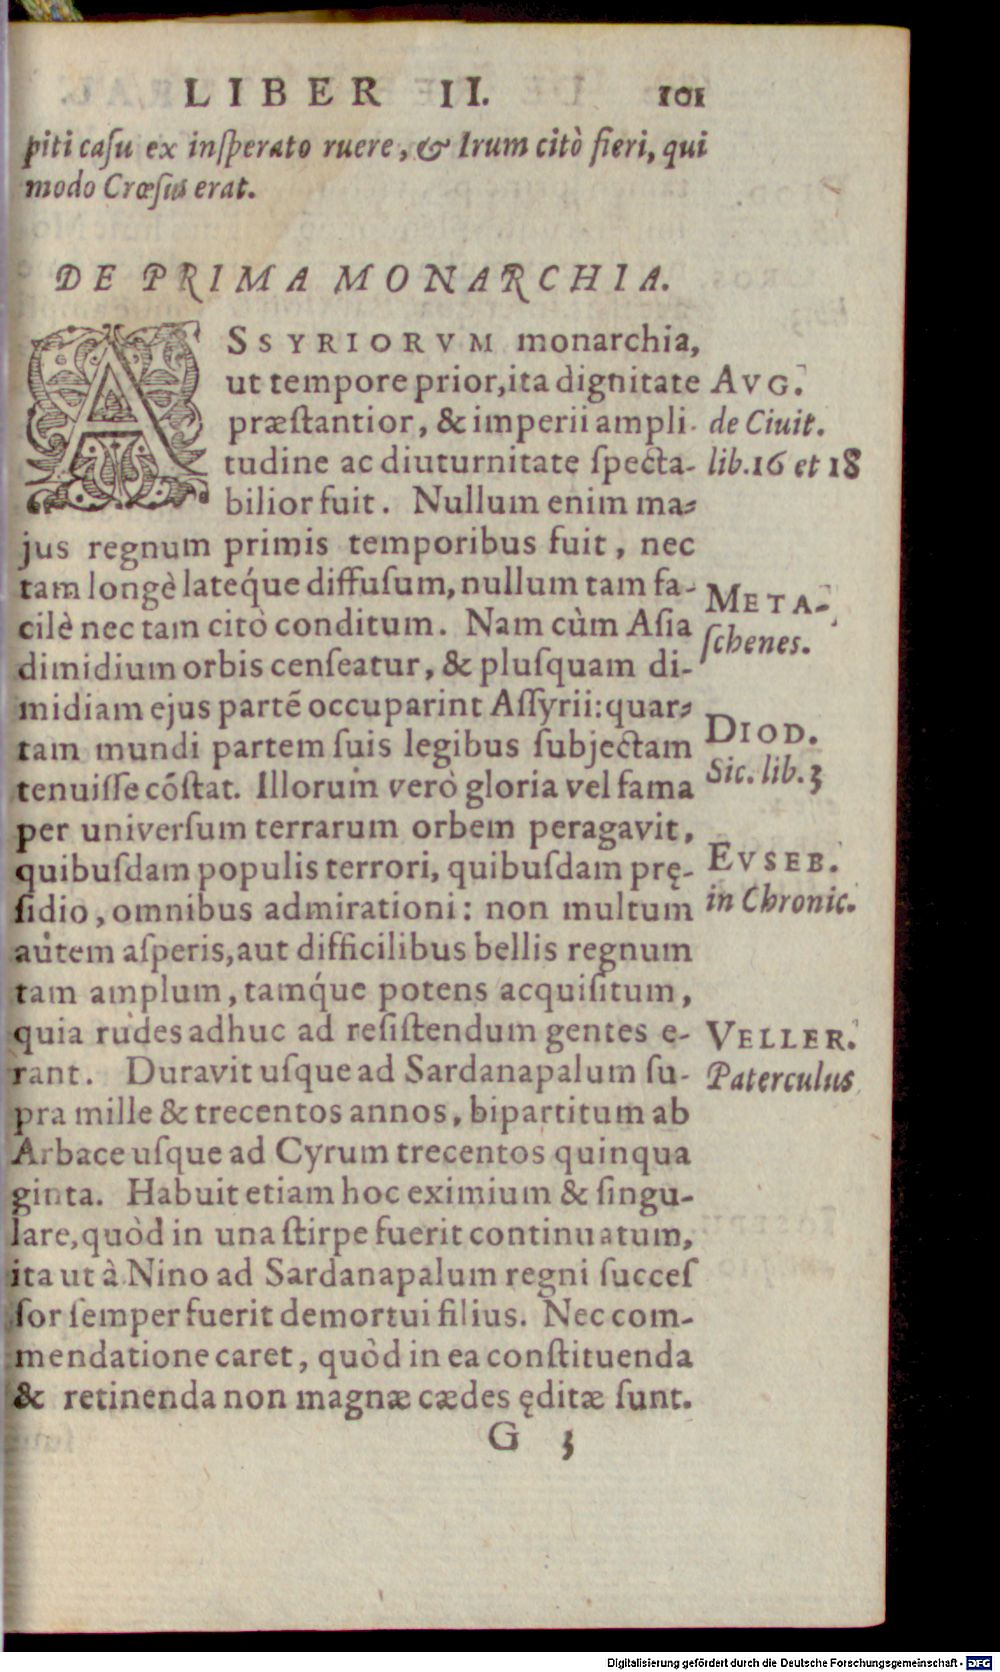 LIBER II. 101
piti caſu ex inſperato ruere, & Irum citò fieri, qui
modo Crœſus erat.
DE PRIMA MONARCHIA.
ASSYRIORVM monarchia,
ut tempore prior, ita dignitate
præſtantior, & imperii ampli-
tudine ac diuturnitate ſpecta-
bilior fuit. Nullum enim ma-
jus regnum primis temporibus fuit, nec
tam longè lateq́ue diffuſum, nullum tam fa-
cilè nec tam citò conditum. Nam cùm Aſia
dimidium orbis cenſeatur, & pluſquam di-
midiam ejus partē occuparint Aſſyrii: quar-
tam mundi partem ſuis legibus ſubjectam
tenuiſſe cōſtat. Illorum verò gloria vel fama
per univerſum terrarum orbem peragavit,
quibuſdam populis terrori, quibuſdam prę-
ſidio, omnibus admirationi: non multum
autem aſperis, aut difficilibus bellis regnum
tam amplum, tamq́ue potens acquiſitum,
quia rudes adhuc ad reſiſtendum gentes e-
rant. Duravit uſque ad Sardanapalum ſu-
pra mille & trecentos annos, bipartitum ab
Arbace uſque ad Cyrum trecentos quinqua
ginta. Habuit etiam hoc eximium & ſingu-
lare, quòd in una ſtirpe fuerit continuatum,
ita ut à Nino ad Sardanapalum regni succeſ
ſor ſemper fuerit demortui filius. Nec com-
mendatione caret, quòd in ea conſtituenda
& retinenda non magnæ cædes ęditæ ſunt.
G 3
AVG.
de Ciuit.
lib.16 et 18
META-
ſchenes.
DIOD.
Sic. lib.3
EVSEB.
in Chronic.
VELLER.
Paterculus
Digitalisierung gefördert durch die Deutsche Forschungsgemeinschaft - DFG